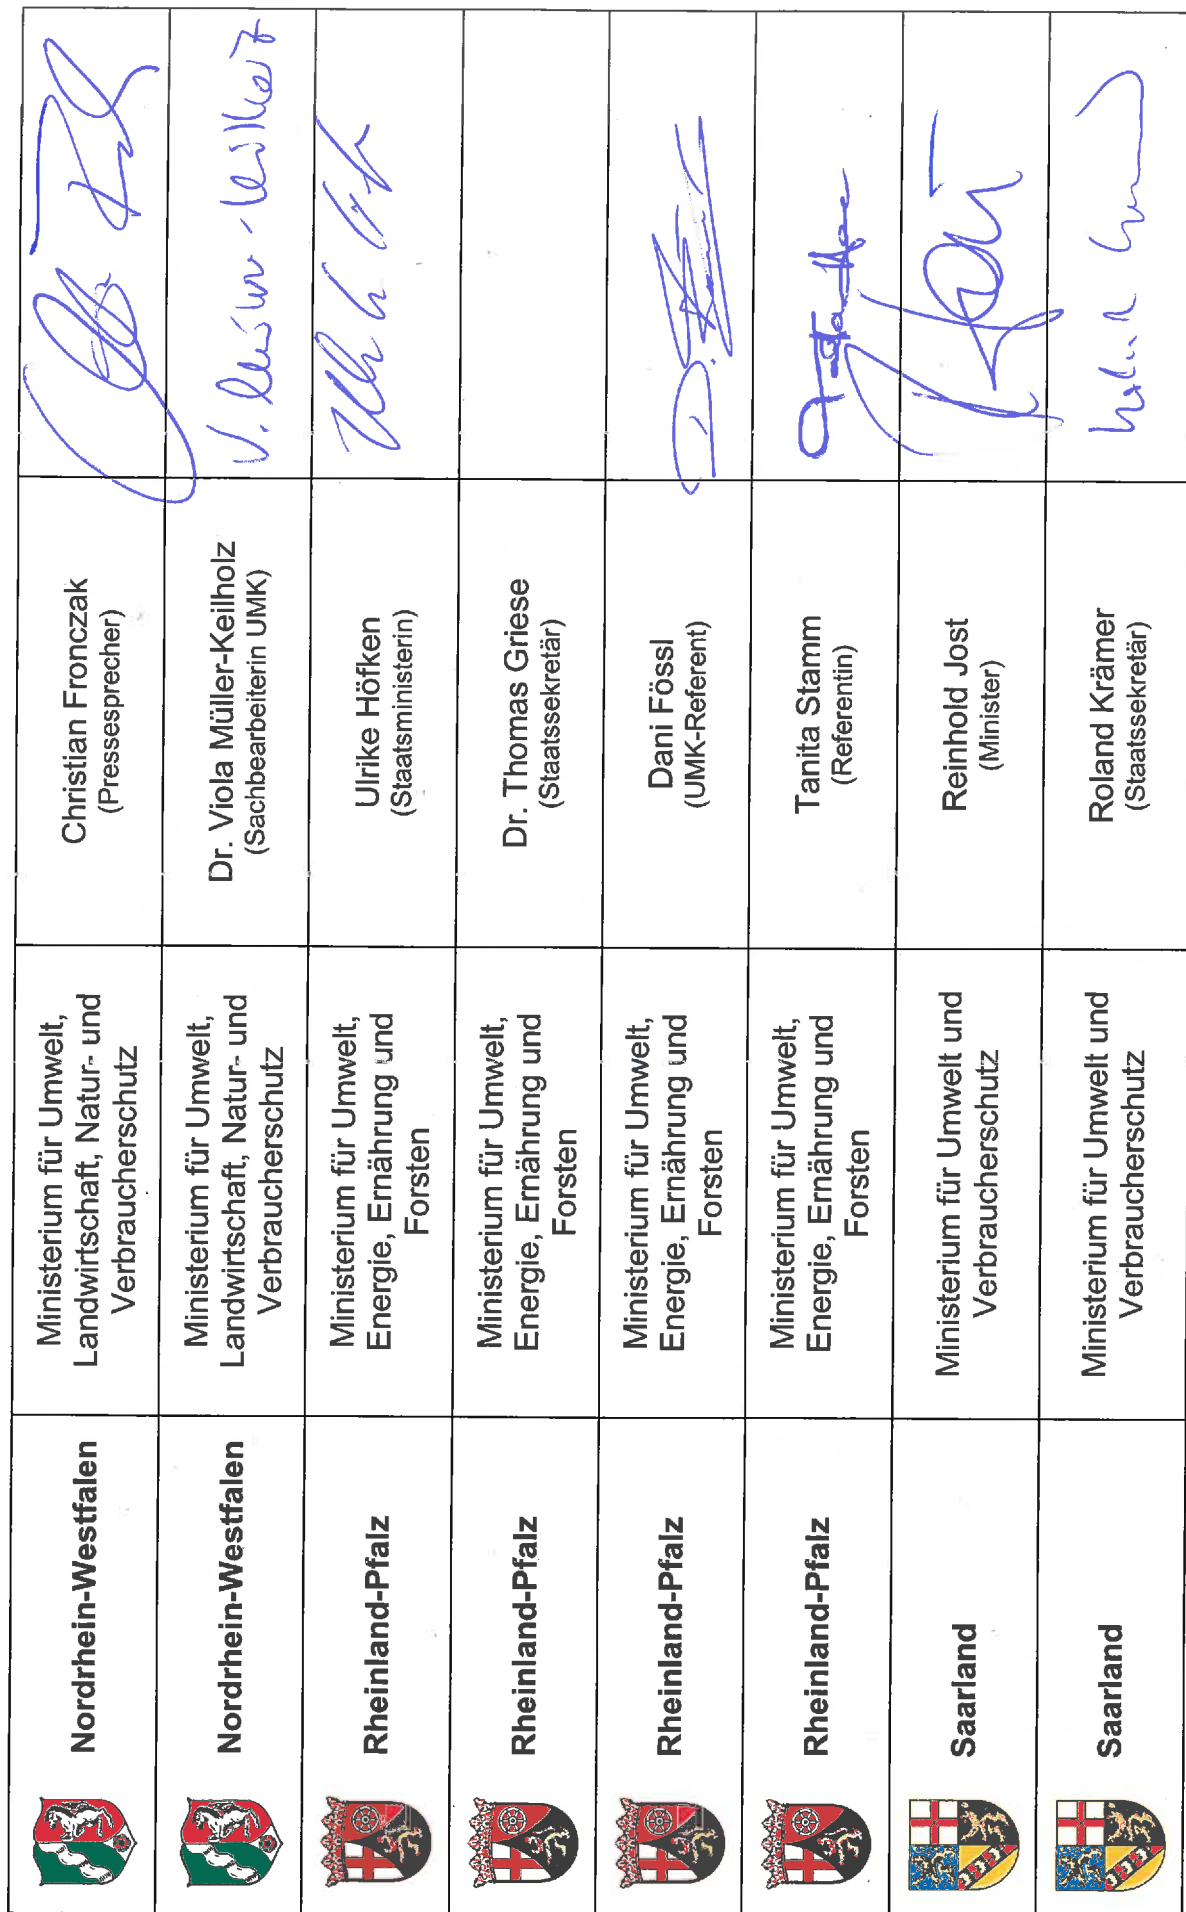 Nordrhein-Westfalen
Ministerium für Umwelt,
Landwirtschaft, Natur- und
Verbraucherschutz
Christian Fronczak
(Pressesprecher)
Nordrhein-Westfalen
Ministerium für Umwelt,
Landwirtschaft, Natur- und
Verbraucherschutz
Dr. Viola Müller-Keilholz
(Sachbearbeiterin UMK)
V. Müller-Keilholz
Rheinland-Pfalz
Ministerium für Umwelt,
Energie, Ernährung und
Forsten
Ulrike Höfken
(Staatsministerin)
Rheinland-Pfalz
Ministerium für Umwelt,
Energie, Ernährung und
Forsten
Dr. Thomas Griese
(Staatssekretär)
Rheinland-Pfalz
Ministerium für Umwelt,
Energie, Ernährung und
Forsten
Dani Fössl
(UMK-Referent)
Rheinland-Pfalz
Ministerium für Umwelt,
Energie, Ernährung und
Forsten
Tanita Stamm
(Referentin)
Saarland
Ministerium für Umwelt und
Verbraucherschutz
Reinhold Jost
(Minister)
Saarland
Ministerium für Umwelt und
Verbraucherschutz
Roland Krämer
(Staatssekretär)